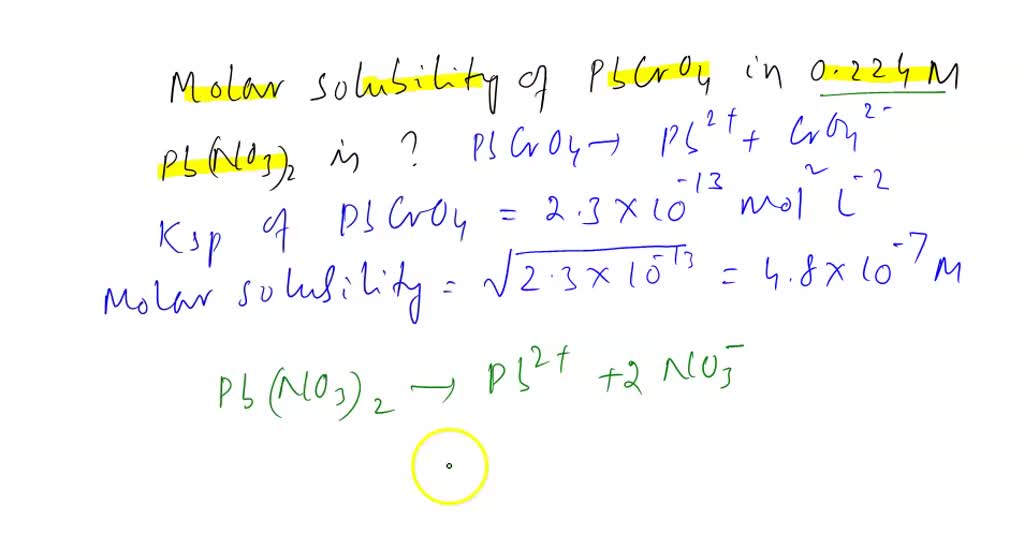 Molar solubility of PbCrO4 in 0.224M
Pb(NO3)2 is ? PbCrO4 → Pb2+ + CrO4 2-
Ksp of PbCrO4 = 2.3 × 10-13 mol2 L-2
Molar solubility = √2.3 × 10-13 = 4.8 × 10-7 M
Pb(NO3)2 → Pb2+ + 2 NO3-